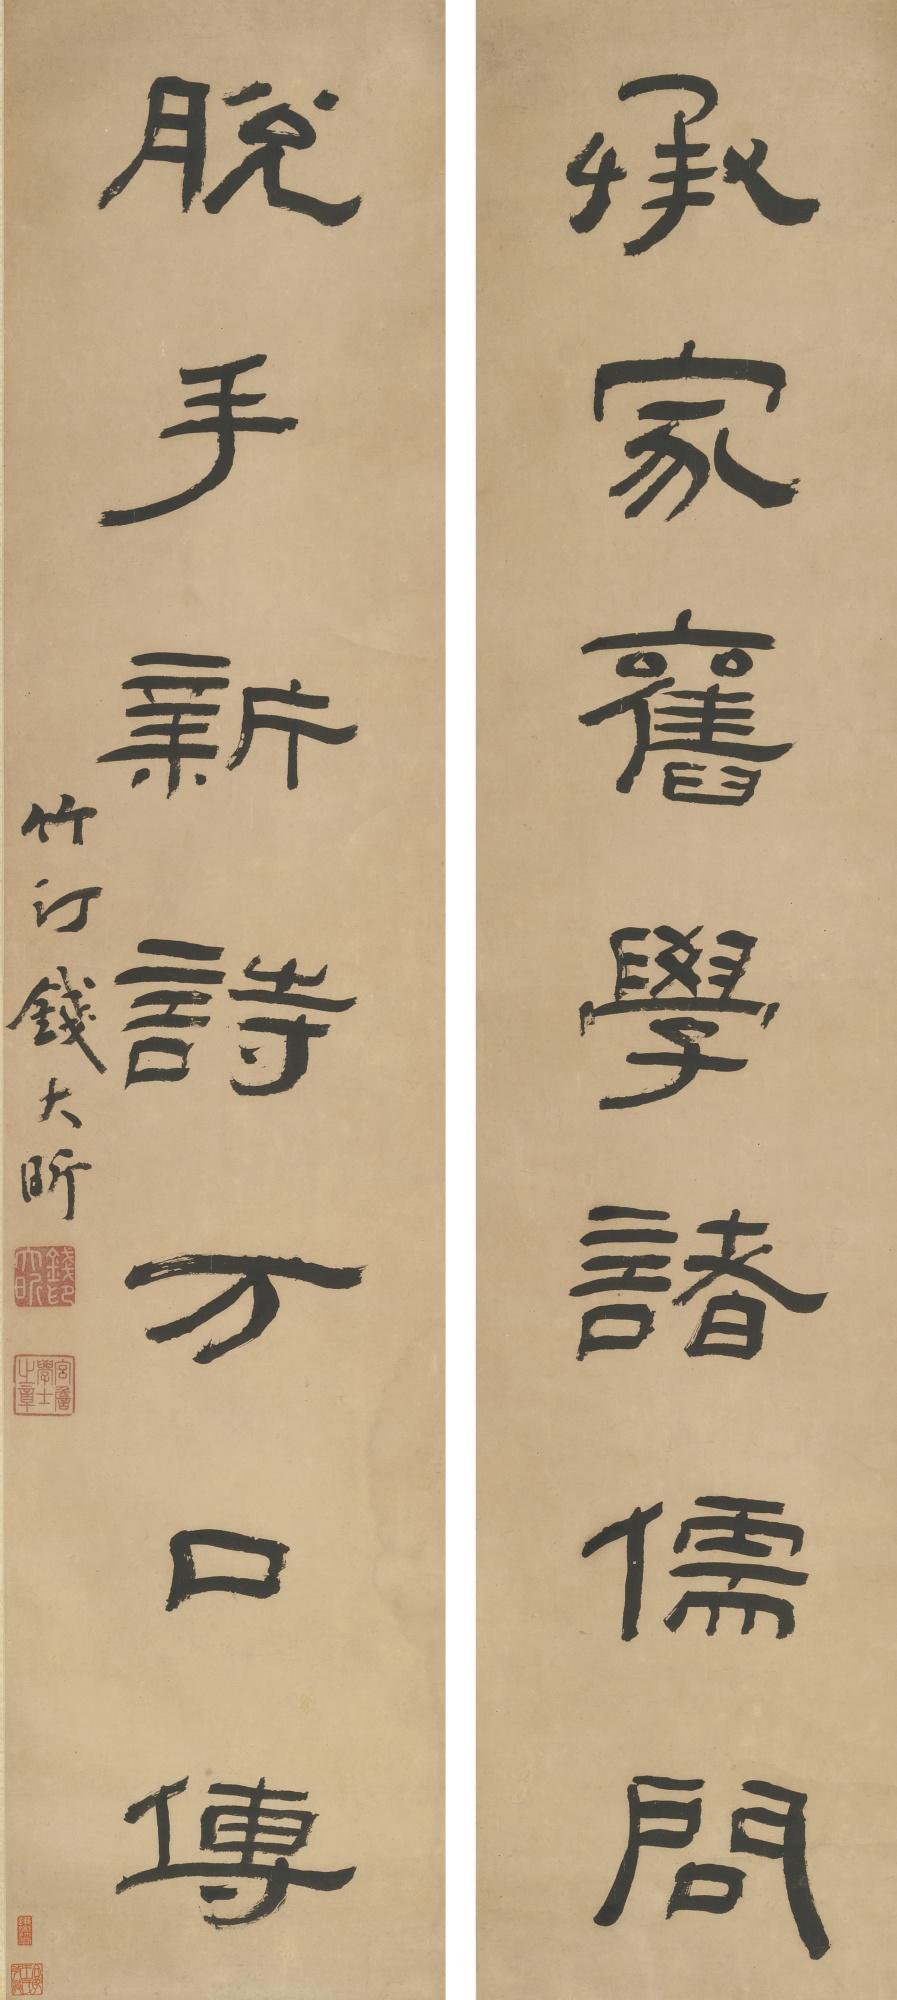 承家舊學諸儒問
脫手新詩万口傳
竹汀錢大昕
錢大昕印
宮詹學士之章